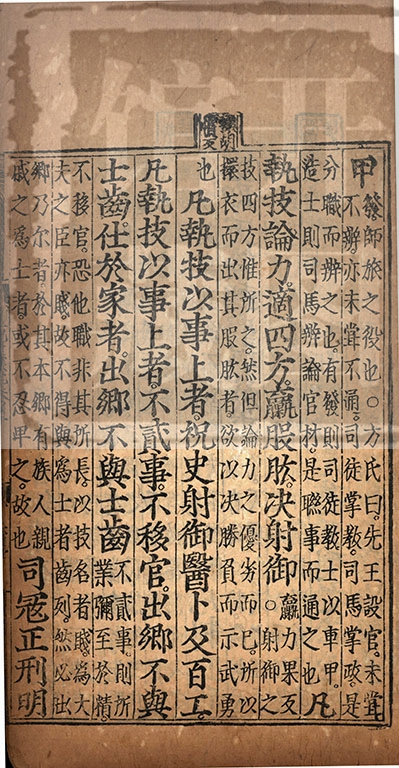 甲
發師旅之役也○方氏曰。先王設官。未嘗
不辨亦未嘗不通。司徒掌教。司馬掌政。是
分職而辨之也。有發則司徒教士以車甲。
造士則司馬辨論官材。是聯事而通之也。
凡
執技論力。適四方。臝股肱。決射御
臝力果反
○射御之
技四方惟所之。然但論力之優劣而已。所以
擐衣而出其股肱者欲以決勝負而示武勇
也
凡執技以事上者。祝史射御醫卜及百工。
凡執技以事上者。不貳事。不移官。出鄉不與
士齒。仕於家者。出鄉不與士齒
不貳事。則所
業彌至於精。
不移官。恐他職非其所長。以技名者賤。為大
夫之臣亦賤。故不得與爲士者齒列。然必出
鄉乃尔者。於其本鄉有族人親
戚之爲士者。或不忍卑之。故也
司冦正刑明